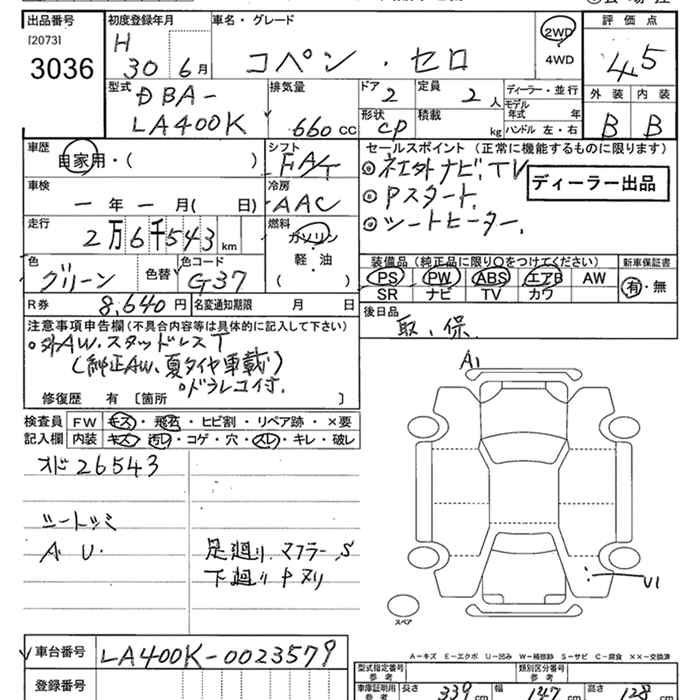 出品番号 初度登録年月 車名・グレード 評価点
[2073] H 2WD
3036 30 6月 コペン・セロ 4WD 4.5
型式 DBA- 排気量 ドア 定員 ディーラー・並行 外装 内装
2 2人 モデル年式 年
LA400K 660 cc 形状 積載 ハンドル 左・右 B B
CP kg
車歴 シフト セールスポイント(正常に機能するものに限ります)
自家用・( ) FAT ◎ネエ外ナビ.TV
車検 冷房 ◎Pスタート. ディーラー出品
一年一月( 日) AAC ◎シートヒーター.
走行 燃料
2万6千543km ガソリン
軽・油 装備品(純正品に限り○をつけてください) 新車保証書
色 色替 色コード ( ) PS PW ABS エアB AW 有・無
グリーン G37 SR ナビ TV カワ
R券 8,640円 名変通知期限 月 日 後日品
注意事項申告欄(不具合内容等は具体的に記入して下さい) 取、保.
○外AW.スタッドレスT
(純正AW、夏タイヤ車載)
○ドラレコ付.
修復歴 有 [箇所 ]
検査員 FW キズ・飛石・ヒビ割・リペア跡・×要
記入欄 内装 キズ・汚レ・コゲ・穴・スレ・キレ・破レ
A1
オド26543
シートシミ
A U. 足廻り.マフラーS
下廻りPヌリ
U1
スペア
車台番号 LA400K-0023579
A-キズ E-エクボ U-凹み W-補修跡 S-サビ C-腐食 XX-交換済
登録番号 型式指定番号 参考 類別区分番号 参考
車庫証明用 参考 長さ 339cm 幅 147cm 高さ 128cm